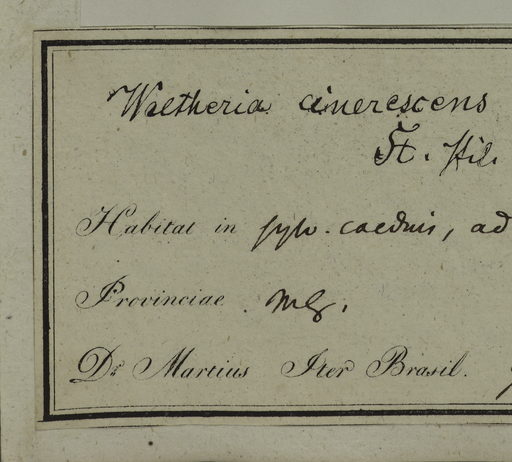 Waltheria cinerescens
St. Hil.
Habitat in sylv. caeduis, ad
Provinciae
Dr Martius Iter Brasil.